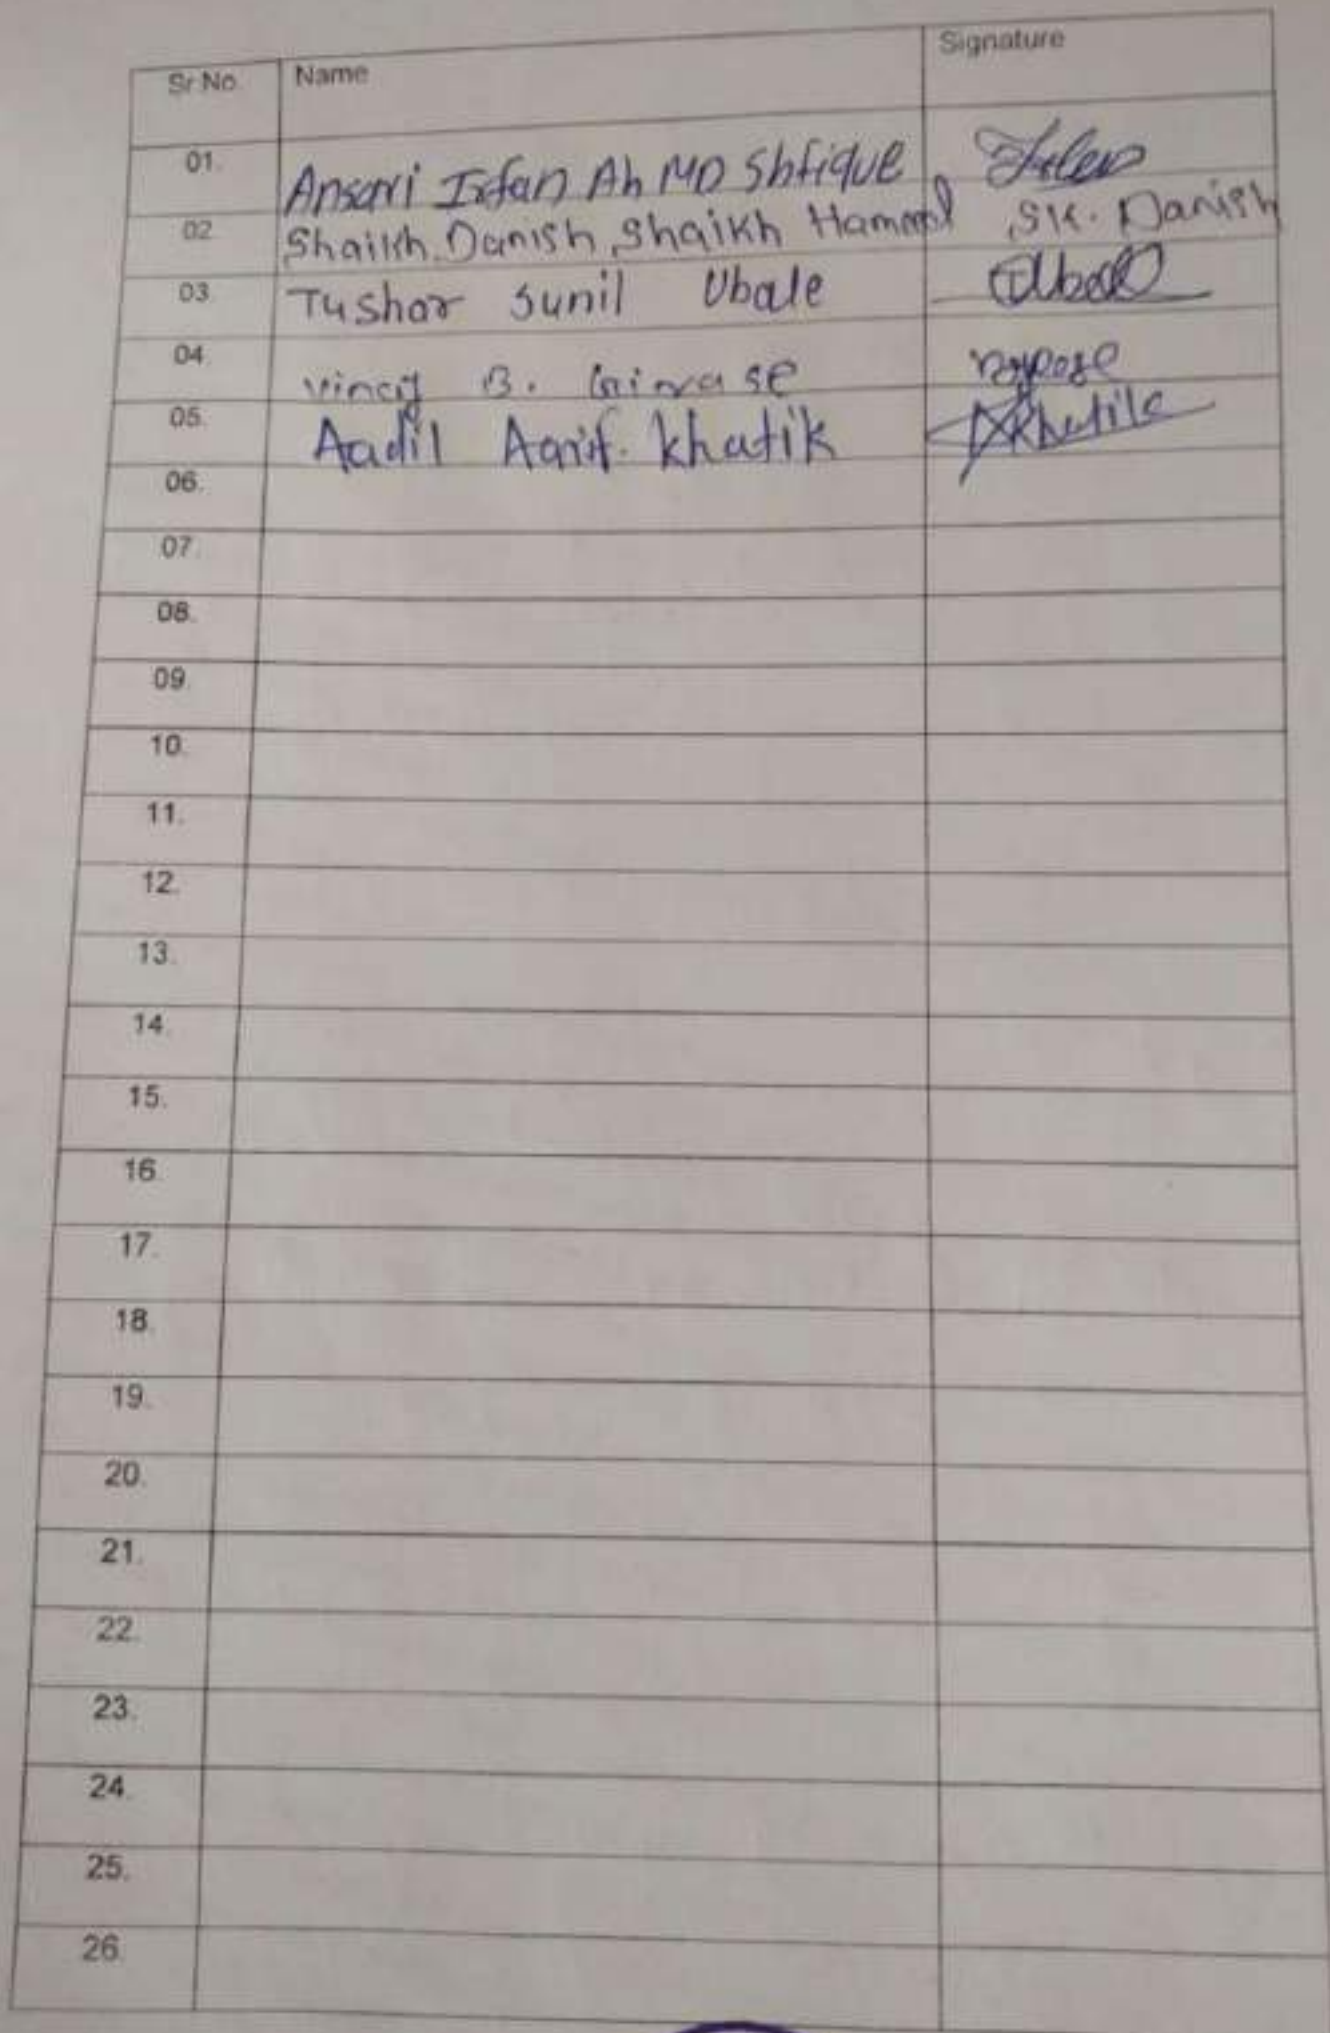 Sr.No. Name Signature
01. Ansari Irfan Ah MD Shfique
02 Shaikh Danish Shaikh SK. Danish
03 Tushar Sunil Ubale
04 B. Girase
05. Aadil Aarif. Khatik AKhatik
06.
07.
08.
09.
10.
11.
12.
13.
14.
15.
16.
17.
18.
19.
20.
21.
22.
23.
24.
25.
26.